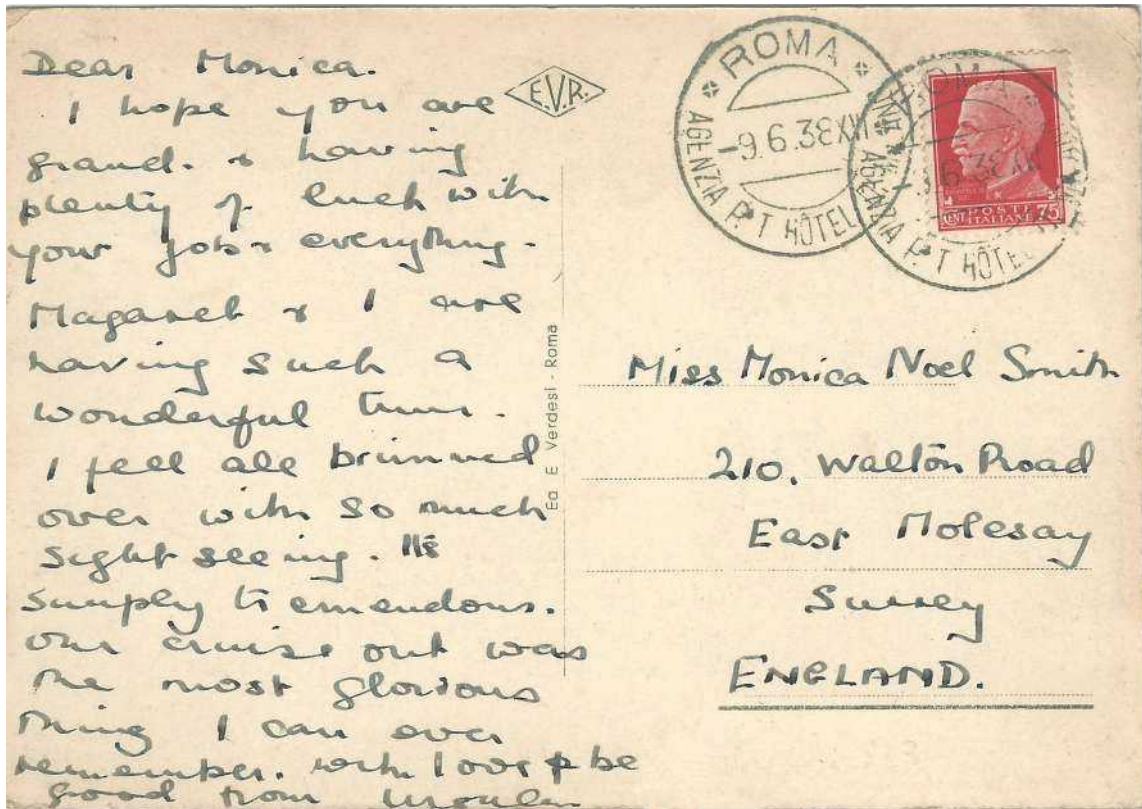 Dear Monica.
I hope you are
grand. & having
plenty of luck with
your job & everything.
Magaret & I are
having such a
wonderful time.
I feel all brimmed
over with so much
sight seeing. It's
simply tremendous.
Our cruise out was
the most glorious
thing I can ever
remember. With love & be
good from
E.V.R.
Ea E Verdesi - Roma
ROMA
-9.6.38XVI
AGENZIA P.T HÔTEL
ROMA
.6.38XVI
AGENZIA P.T HÔTEL
POSTE
ITALIANE
CENT 75
Miss Monica Noel Smith
210, Walton Road
East Molesay
Surrey
ENGLAND.